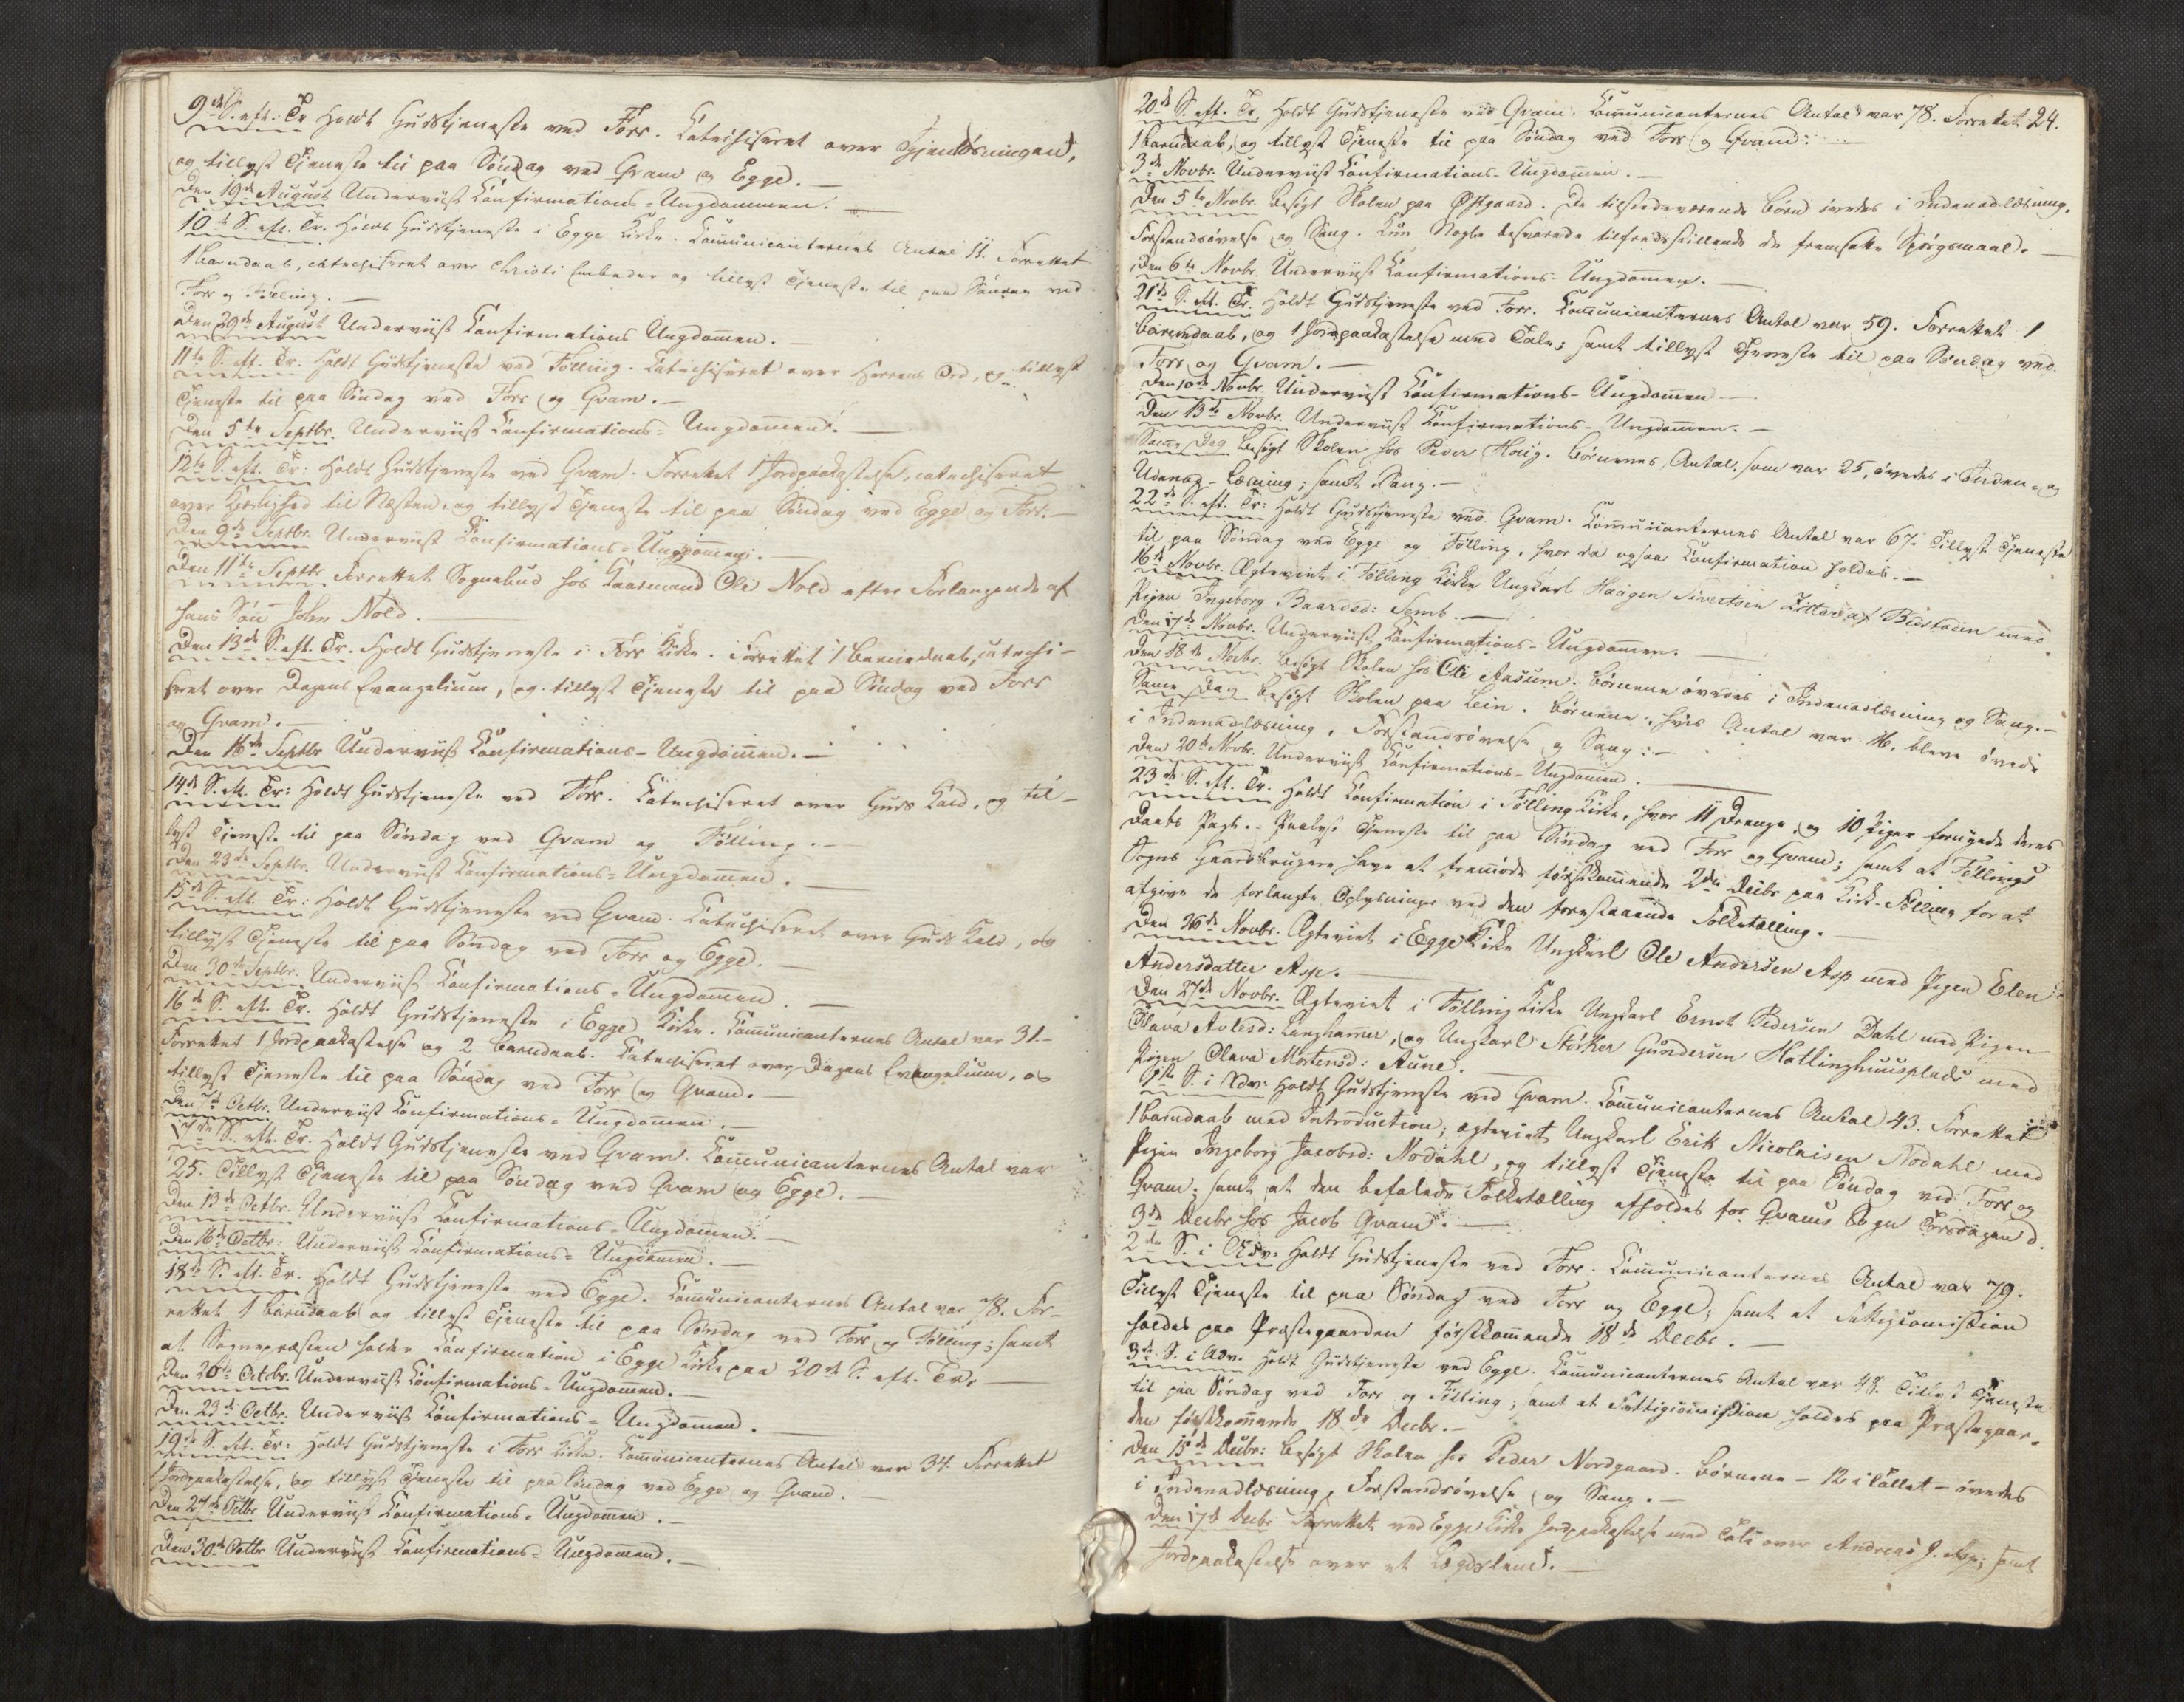 9de S. eft. Tr. Holdt Gudstjeneste ved Forr. Catechiseret over Gjenløsningen,
og tillyst Tjeneste til paa Søndag ved Qvam og Egge. —
Den 19de August Underviist Confirmations-Ungdommen. —
10de S. eft. Tr. Holdt Gudstjeneste i Egge Kirke. Communicanternes Antal 11. Forrettet
1 Barnedaab, catechiseret over Christi Embeder og tillyst Tjeneste til paa Søndag ved
Forr og Følling. —
Den 29de August Underviist Confirmations Ungdomen. —
11te S. eft. Tr. Holdt Gudstjeneste ved Følling. Catechiseret over Herrens Ord, og tillyst
Tjeneste til paa Søndag ved Forr og Qvam. —
Den 5te Septbr. Underviist Confirmations-Ungdomen. —
12te S. eft. Tr: Holdt Gudstjeneste ved Qvam. Forrettet 1 Jordpaakastelse, catechiseret
over Kjerlighed til Næsten, og tillyst Tjeneste til paa Søndag ved Egge og Forr. —
Den 9de Septbr. Underviist Confirmations-Ungdomen. —
Den 11te Septbr Forrettet Sognebud hos Gaarmand Ole Nold efter Forlangende af
hans Søn John Nold.
Den 13de S. eft. Tr. Holdt Gudstjeneste i Forr Kirke. Forrettet 1 Barnedaab, catechi-
seret over Dagens Evangelium, og tillyst Tjeneste til paa Søndag ved Forr
og Qvam. —
Den 16de Septbr Underviist Confirmations-Ungdomen. —
14de S. eft. Tr: Holdt Gudstjeneste ved Forr. Catechiseret over Guds Kald, og til-
lyst Tjeneste til paa Søndag ved Qvam og Følling. —
Den 23de Septbr. Underviist Confirmations-Ungdomen. —
15de S. eft. Tr: Holdt Gudstjeneste ved Qvam. Catechiseret over Guds Kald, og
tillyst Tjeneste til paa Søndag ved Forr og Egge. —
Den 30te Septbr. Underviist Confirmations-Ungdomen. —
16de S. eft. Tr. Holdt Gudstjeneste i Egge Kirke. Communicanternes Antal var 31. —
Forrettet 1 Jordpaakastelse og 2 Barnedaab. Catechiseret over Dagens Evangelium, og
tillyst Tjeneste til paa Søndag ved Forr og Qvam. —
Den Octbr. Underviist Confirmations-Ungdomen. —
17de S. eft. Tr. Holdt Gudstjeneste ved Qvam. Communicanternes Antal var
25. Tillyst Tjeneste til paa Søndag ved Qvam og Egge. —
Den 13de Octbr. Underviist Confirmations-Ungdomen. —
Den 16de Octbr: Underviist Confirmations-Ungdomen. —
18de S. eft. Tr. Holdt Gudstjeneste ved Egge. Communicanternes Antal var 78. For-
rettet 1 Barnedaab og tillyst Tjeneste til paa Søndag ved Forr og Følling; samt
at Sognepræsten holder Confirmation i Egge Kirke paa 20de S. eft. Tr. —
Den 20de Octbr. Underviist Confirmations-Ungdomen. —
Den 23de Octbr. Underviist Confirmations-Ungdomen. —
19de S. eft. Tr: Holdt Gudstjeneste i Forr Kirke. Communicanternes Antal var 34. Forrettet
1 Jordpaakastelse, og tillyst Tjeneste til paa Søndag ved Egge og Qvam.
Den 27de Octbr Underviist Confirmations-Ungdomen. —
Den 30de Octbr Underviist Confirmations-Ungdomen. —
24.
20de S. eft. Tr. Holdt Gudstjeneste ved Qvam. Communicanternes Antal var 78. Forrettet
1 Barnedaab, og tillyst Tjeneste til paa Søndag ved Forr og Qvam. —
3de Novbr. Underviist Confirmations-Ungdomen. —
Den 5te Novbr. Besøgt Skolen paa Østgaard. De tilstedeværende Børn øvedes i Indenadlæsning,
Forstandsøvelse og Sang. Kun Nogle besvarede tilfredsstillende de fremsatte Spørgsmaal. —
Den 6te Novbr. Underviist Confirmations-Ungdomen. —
21de S. eft. Tr. Holdt Gudstjeneste ved Forr. Communicanternes Antal var 59. Forrettet 1
Barnedaab, og 1 Jordpaakastelse med Tale; samt tillyst Tjeneste til paa Søndag ved
Forr og Qvam. —
Den 10de Novbr. Underviist Confirmations-Ungdomen —
Den 13de Novbr. Underviist Confirmations-Ungdomen. —
Samme Dag besøgt Skolen hos Peder Haug. Børnenes Antal, som var 25, øvedes i Inden- og
Udenad-Læsning; samt Sang. —
22de S. eft. Tr: Holdt Gudstjeneste ved Qvam. Communicanternes Antal var 67. Tillyst Tjeneste
til paa Søndag ved Egge og Følling, hvor da ogsaa Confirmation holdes. —
16de Novbr. Ægteviet i Følling Kirke Ungkarl Haagen Sivertsen af Beitstaden med
Pigen Ingeborg Baardsd: Semb. —
Den 17de Novbr. Underviist Confirmations-Ungdomen. —
Den 18de Novbr. besøgt Skolen hos Ole Aasum. Børnene øvedes i Indenadlæsning og Sang. —
Samme Dag besøgt Skolen paa Lein. Børnene, hvis Antal var 16, bleve øvede
i Indenadlæsning, Forstandsøvelse og Sang. —
Den 20de Novbr. Underviist Confirmations-Ungdomen. —
23de S. eft. Tr. Holdt Confirmation i Følling Kirke, hvor 11 Drenge og 10 Piger fornyede deres
Daabs Pagt. - Paalyst Tjeneste til paa Søndag ved Forr og Qvam; samt at Føllings
Sogns Gaardbrugere have at fremmøde førstkommende 2den Decbr paa Kirk-Følling for at
afgive de forlangte Oplysninger ved den forestaaende Folketælling. —
Den 26de Novbr. Ægteviet i Egge Kirke Ungkarl Ole Andersen Asp med Pigen Elen
Andersdatter Asp. —
Den 27de Novbr. Ægteviet i Følling Kirke Ungkarl Ernst Pedersen Dahl med Pigen
Olava Avlesd: Langhamer, og Ungkarl Størker Gundersen Hatlinghuusplads med
Pigen Olava Mortensd: Aune. —
1ste S. i Adv: Holdt Gudstjeneste ved Qvam. Communicanternes Antal 43. Forrettet
1 Barnedaab med Introduction; ægteviet Ungkarl Erik Nicolaisen Nodahl med
Pigen Ingeborg Jacobsd: Nodahl, og tillyst Tjeneste til paa Søndag ved Forr og
Qvam; samt at den befalede Folketælling afholdes for Qvams Sogn Torsdagen d.
3de Decbr hos Jacob Qvam. —
2den S. i Adv: Holdt Gudstjeneste ved Forr. Communicanternes Antal var 79.
Tillyst Tjeneste til paa Søndag ved Forr og Egge; samt at Fattigcomission
holdes paa Præstegaarden førstkommende 18de Decbr. —
3de S. i Adv. Holdt Gudstjeneste ved Egge. Communicanternes Antal var 48. Tillyst Tjeneste
til paa Søndag ved Forr og Følling; samt at Fattigcomission holdes paa Præstegaar-
den førstkommende 18de Decbr. —
Den 15de Decbr: Besøgt Skolen hos Peder Nordgaard. Børnene - 12 i Tallet - øvedes
i Indenadlæsning, Forstandsøvelse og Sang. —
Den 17de Decbr Forrettet ved Egge Kirke Jordpaakastelse med Tale over Andreas J. Asp; samt
Jordpaakastelse over et Lægdslem. —